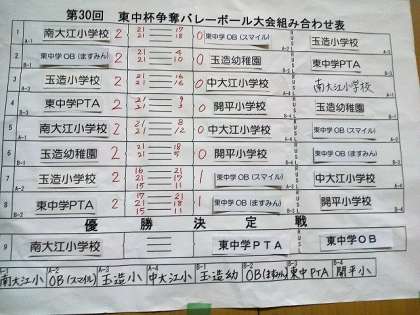 第30回 東中杯争奪バレーボール大会組み合わせ表
1 南大江小学校 2 21 21 17 18 0 東中学OB(スマイル) 玉造小学校
2 東中学OB(ますみん) 2 21 21 4 10 0 玉造幼稚園 東中学PTA
3 玉造小学校 2 21 21 16 0 中大江小学校 南大江小学校
4 東中学PTA 2 21 21 0 開平小学校 玉造幼稚園
5 南大江小学校 2 21 21 8 12 0 中大江小学校 東中学OB(スマイル)
6 玉造幼稚園 2 21 21 18 5 0 開平小学校 東中学OB(ますみん)
7 玉造小学校 2 16 21 15 21 17 11 1 東中学OB(スマイル) 中大江小学校
8 東中学PTA 2 17 21 15 21 18 11 1 東中学OB(ますみん) 開平小学校
優勝決定戦
9 南大江小学校 東中学PTA 東中学OB
A-1 南大江小 A-2 OB(スマイル) A-3 玉造小 A-4 中大江小 B-1 玉造幼 B-2 OB(ますみん) B-3 東中PTA B-4 開平小